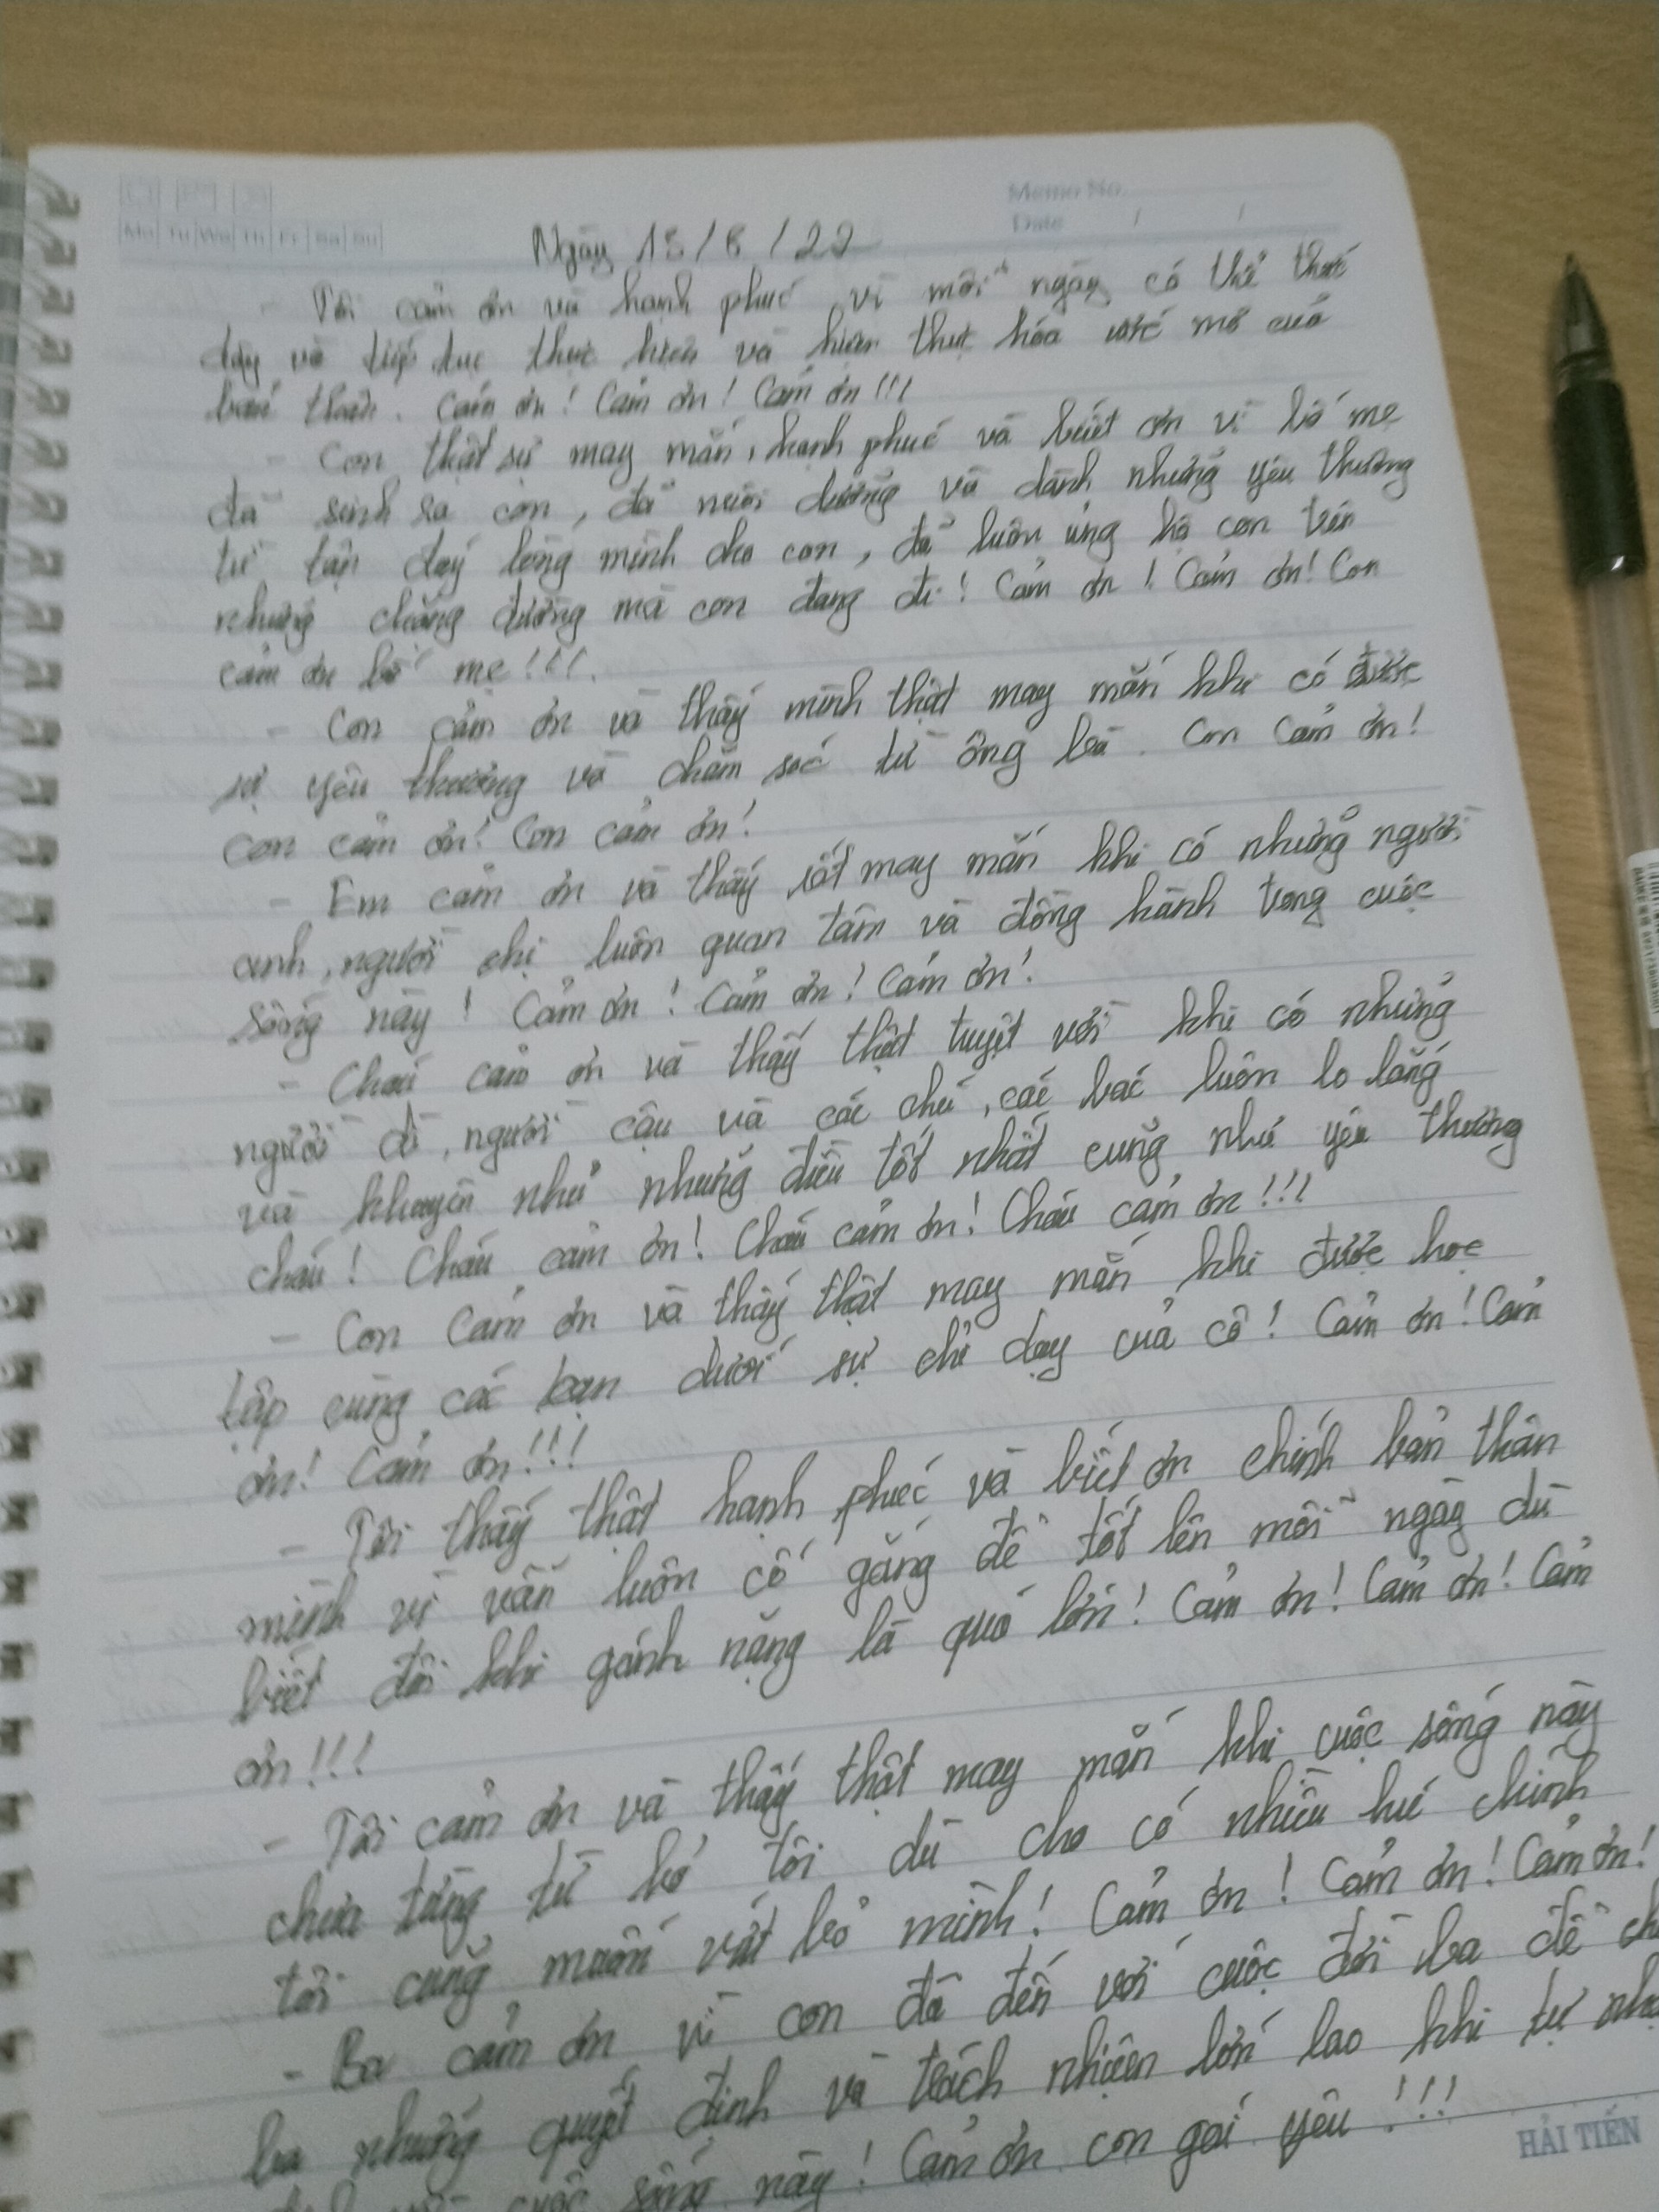 Memo No.
Date / /
Mo Tu We Th Fr Sa Su
Ngày 18/8/22
- Tôi cảm ơn và hạnh phúc vì mỗi ngày có thể thức
dậy và tiếp tục thực hiện và hiện thực hóa ước mơ của
bản thân. Cảm ơn! Cảm ơn! Cảm ơn!!!
- Con thật sự may mắn, hạnh phúc và biết ơn vì bố mẹ
đã sinh ra con, đã nuôi dưỡng và dành những yêu thương
từ tận đáy lòng mình cho con, đã luôn ủng hộ con trên
những chặng đường mà con đang đi! Cảm ơn! Cảm ơn! Con
cảm ơn bố mẹ!!!.
- Con cảm ơn và thấy mình thật may mắn khi có được
sự yêu thương và chăm sóc từ ông bà. Con cảm ơn!
Con cảm ơn! Con cảm ơn!
- Em cảm ơn và thấy rất may mắn khi có những người
anh, người chị luôn quan tâm và đồng hành trong cuộc
sống này! Cảm ơn! Cảm ơn! Cảm ơn!
- Cháu cảm ơn và thấy thật tuyệt vời khi có những
người dì, người cậu và các chú, các bác luôn lo lắng
và khuyên nhủ những điều tốt nhất cũng như yêu thương
cháu! Cháu cảm ơn! Cháu cảm ơn! Cháu cảm ơn!!!
- Con cảm ơn và thấy thật may mắn khi được học
tập cùng các bạn dưới sự chỉ dạy của cô! Cảm ơn! Cảm
ơn! Cảm ơn!!!
- Tôi thấy thật hạnh phúc và biết ơn chính bản thân
mình vì vẫn luôn cố gắng để tốt lên mỗi ngày dù
biết đôi khi gánh nặng là quá lớn! Cảm ơn! Cảm ơn! Cảm
ơn!!!
- Tôi cảm ơn và thấy thật may mắn khi cuộc sống này
chưa từng từ bỏ tôi dù cho có nhiều lúc chính
tôi cũng muốn vứt bỏ mình! Cảm ơn! Cảm ơn! Cảm ơn!
- Ba cảm ơn vì con đã đến với cuộc đời ba để
ba những quyết định và trách nhiệm lớn lao khi tự
cuộc sống này! Cảm ơn con gái yêu!!!
HẢI TIẾN